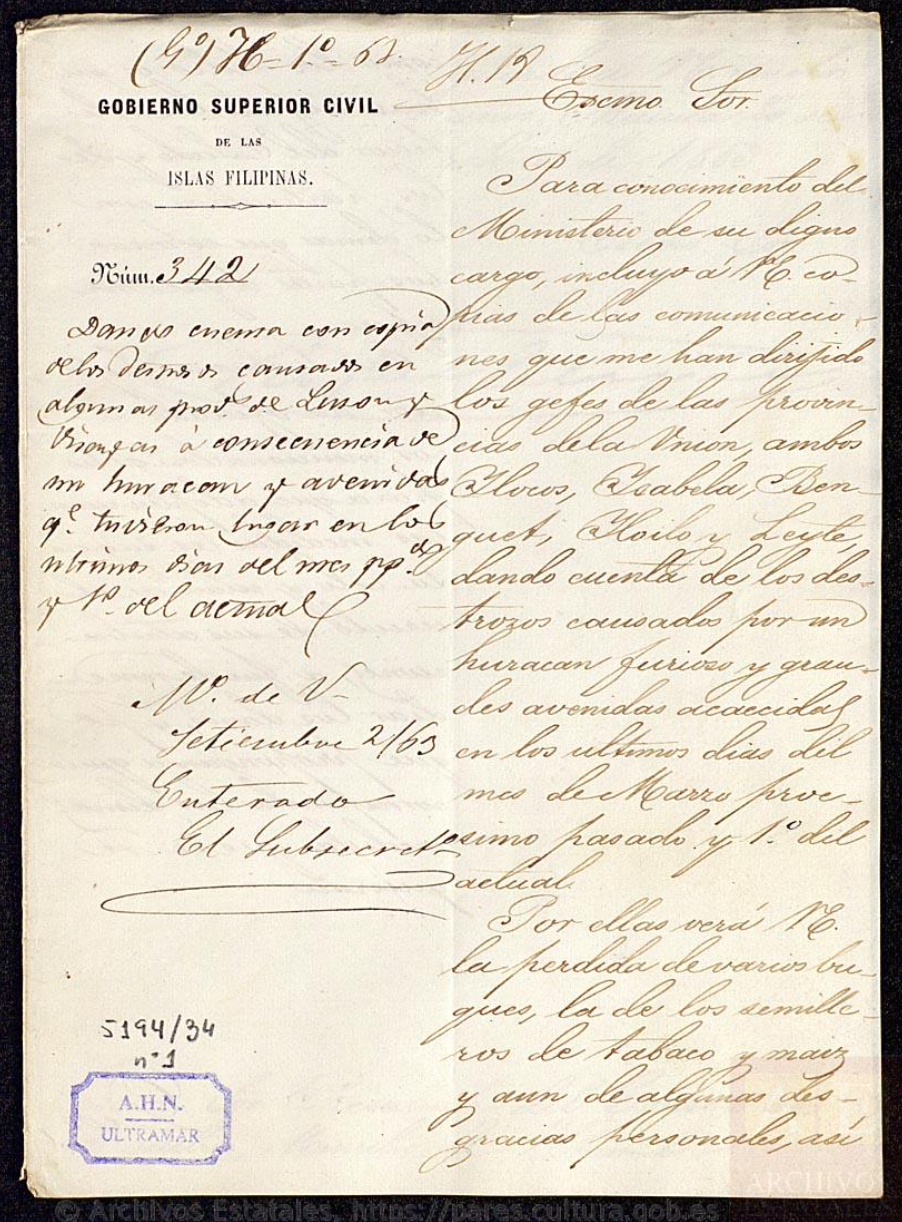 (Gº) H=1º=63.
H. 18
GOBIERNO SUPERIOR CIVIL
DE LAS
ISLAS FILIPINAS.
Núm. 342
cuenta con copia
de los causados en
algunas provs. de Luzon y
Visayas á consecuencia de
un huracan y avenidas
qe. tuvieron lugar en los
ultimos dias del mes pp.do
y 1º del actual
Mº. de V
Setiembre 2/63
Enterado
El Subsecreto
5194/34
nº1
A.H.N.
ULTRAMAR
Escmo. Sor.
Para conocimiento del
Ministerio de su digno
cargo, incluyo á VE. co-
pias de las comunicacio-
nes que me han dirijido
los gefes de las provin-
cias dela Union, ambos
Ilocos, Isabela, Ben-
guet, Iloilo y Leyte,
dando cuenta de los des-
trozos causados por un
huracan furioso y gran-
des avenidas acaecidas
en los ultimos dias del
mes de Marzo proc-
simo pasado y 1.º del
actual.
Por ellas verá VE.
la perdida de varios bu-
ques, la de los semille-
ros de tabaco y maiz
y aun de algunas des-
gracias personales, así
ARCHIVO
© Archivos Estatales, https://pares.cultura.gob.es